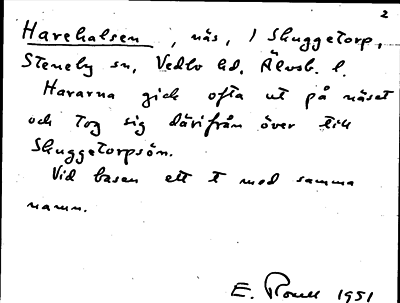 2
Harehalsen, näs, i Skuggetorp,
Steneby sn, Vedbo hd, Älvsb. l.
Hararna gick ofta ut på näset
och tog sig därifrån över till
Skuggetorpsön.
Vid basen ett t med samma
namn.
E. 1951